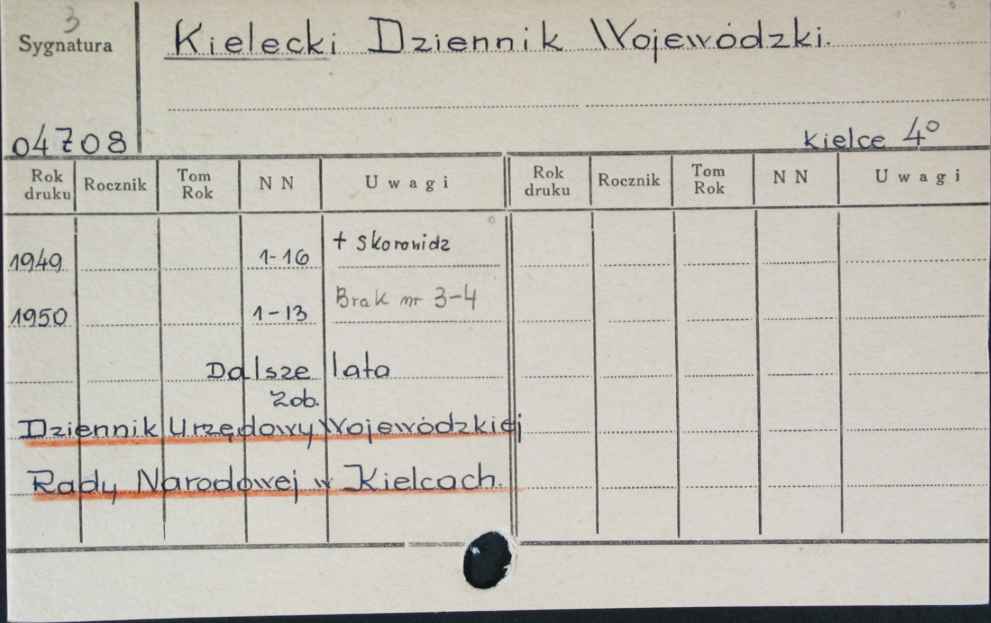 3
Sygnatura
Kielecki Dziennik Wojewódzki.
04708
Kielce 4°
Rok druku Rocznik Tom Rok N N Uwagi Rok druku Rocznik Tom Rok N N Uwagi
1949 1-16 + Skorowidz
1950 1-13 Brak nr 3-4
Dalsze lata
zob.
Dziennik Urzędowy Wojewódzkiej
Rady Narodowej w Kielcach.